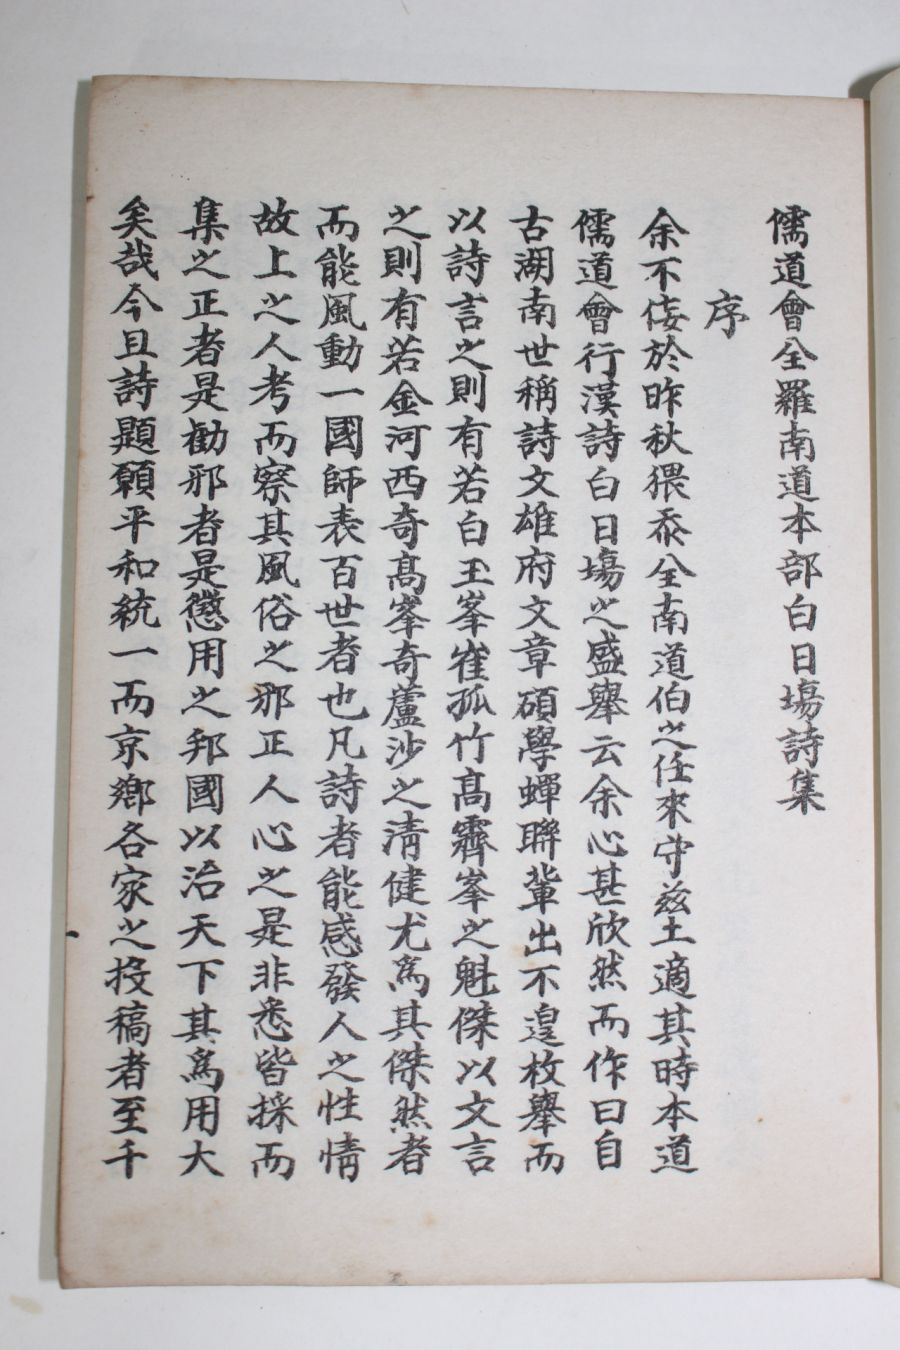 儒道會全羅南道本部白日場詩集
序
余不佞於昨秋猥忝全南道伯之任來守玆土適其時本道
儒道會行漢詩白日場之盛擧云余心甚欣然而作曰自
古湖南世稱詩文雄府文章碩學蟬聯輩出不遑枚擧而
以詩言之則有若白玉峯崔孤竹高霽峯之魁傑以文言
之則有若金河西奇高峯奇蘆沙之淸健尤爲其傑然者
而能風動一國師表百世者也凡詩者能感發人之性情
故上之人考而察其風俗之邪正人心之是非悉皆採而
集之正者是勸邪者是懲用之邦國以治天下其爲用大
矣哉今且詩題願平和統一而京鄕各家之投稿者至千